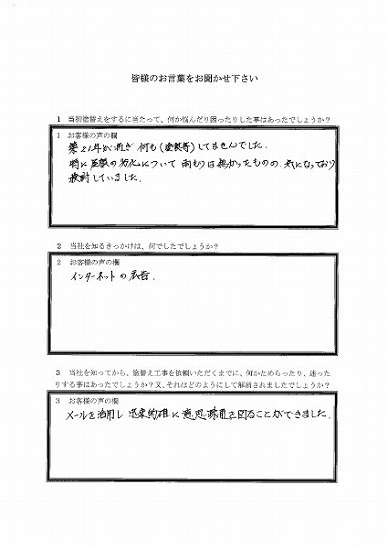 皆様のお言葉をお聞かせ下さい
1 当初塗替えをするに当たって、何か悩んだり困ったりした事はあったでしょうか?
1 お客様の声の欄
築21年が過ぎ 何も(塗装等)してませんでした.
特に 屋根の劣化について 雨もりは無かったものの. 気になっており
検討していました.
2 当社を知るきっかけは、何でしたでしょうか?
2 お客様の声の欄
インターネットの広告.
3 当社を知ってから、塗替え工事を依頼いただくまでに、何かためらったり、迷った
りする事はあったでしょうか?又、それはどのようにして解消されましたでしょうか?
3 お客様の声の欄
メールを活用し 迅速的確に 意思疎通を図ることができました.